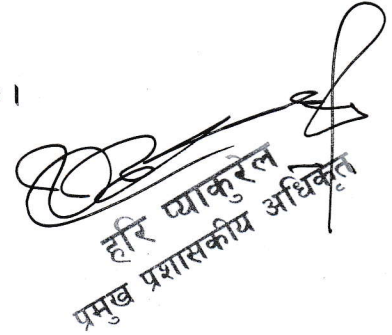 ।
हरि प्याकुरेल
प्रमुख प्रशासकीय अधिकृत